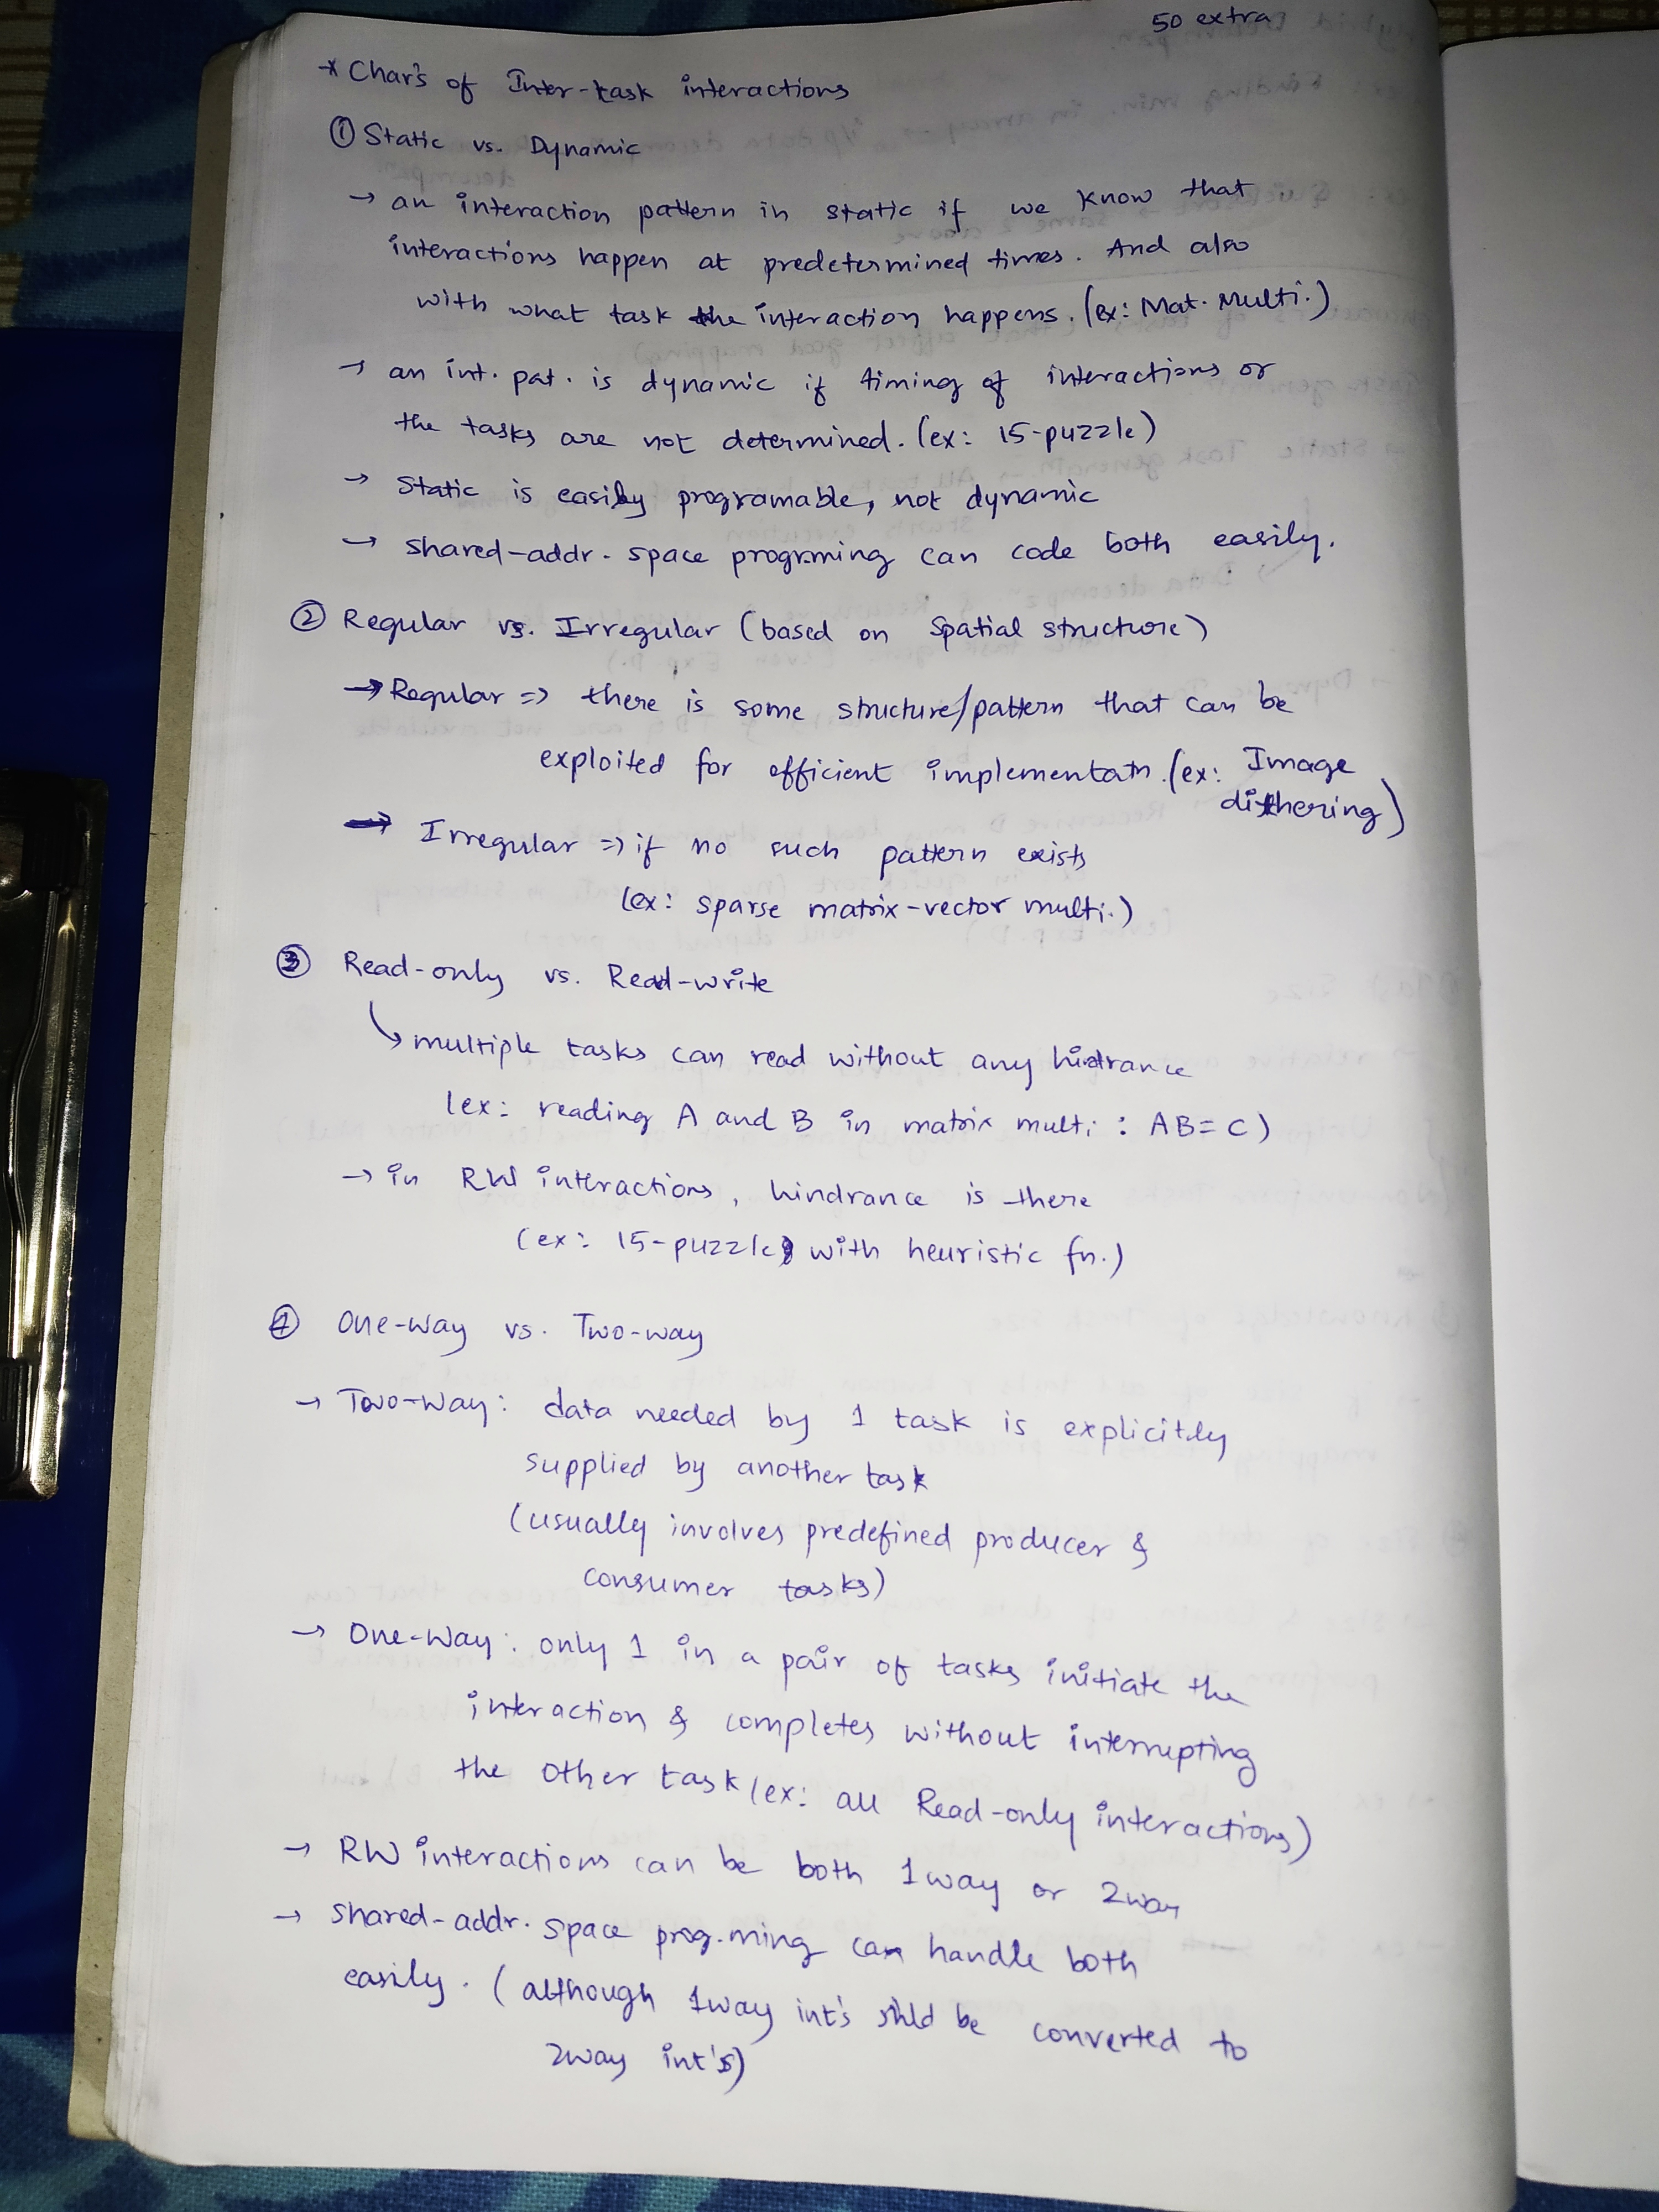 50 extra
* Char's of Inter-task interactions
① Static vs. Dynamic
→ an interaction pattern in static if we know that
interactions happen at predetermined times. And also
with what task the interaction happens. (ex: Mat. Multi.)
→ an int. pat. is dynamic if timing of interactions or
the tasks are not determined. (ex: 15-puzzle)
→ Static is easily programable, not dynamic
→ shared-addr. space progrming can code both easily.
② Regular vs. Irregular (based on Spatial structure)
→ Regular => there is some structure/pattern that can be
exploited for efficient implementatn. (ex: Image
dithering)
→ Irregular => if no such pattern exists
(ex: sparse matrix-vector multi.)
③ Read-only vs. Read-write
↳ multiple tasks can read without any hindrance
(ex: reading A and B in matrix multi : AB = C)
→ in RW interactions, hindrance is there
(ex: 15-puzzle with heuristic fn.)
④ One-way vs. Two-way
→ Two-way: data needed by 1 task is explicitly
supplied by another task
(usually involves predefined producer &
consumer tasks)
→ One-way: only 1 in a pair of tasks initiate the
interaction & completes without interrupting
the other task (ex: all Read-only interactions)
→ RW interactions can be both 1way or 2way
→ shared-addr. space prog.ming can handle both
easily. (although 1way int's shld be converted to
2way int's)